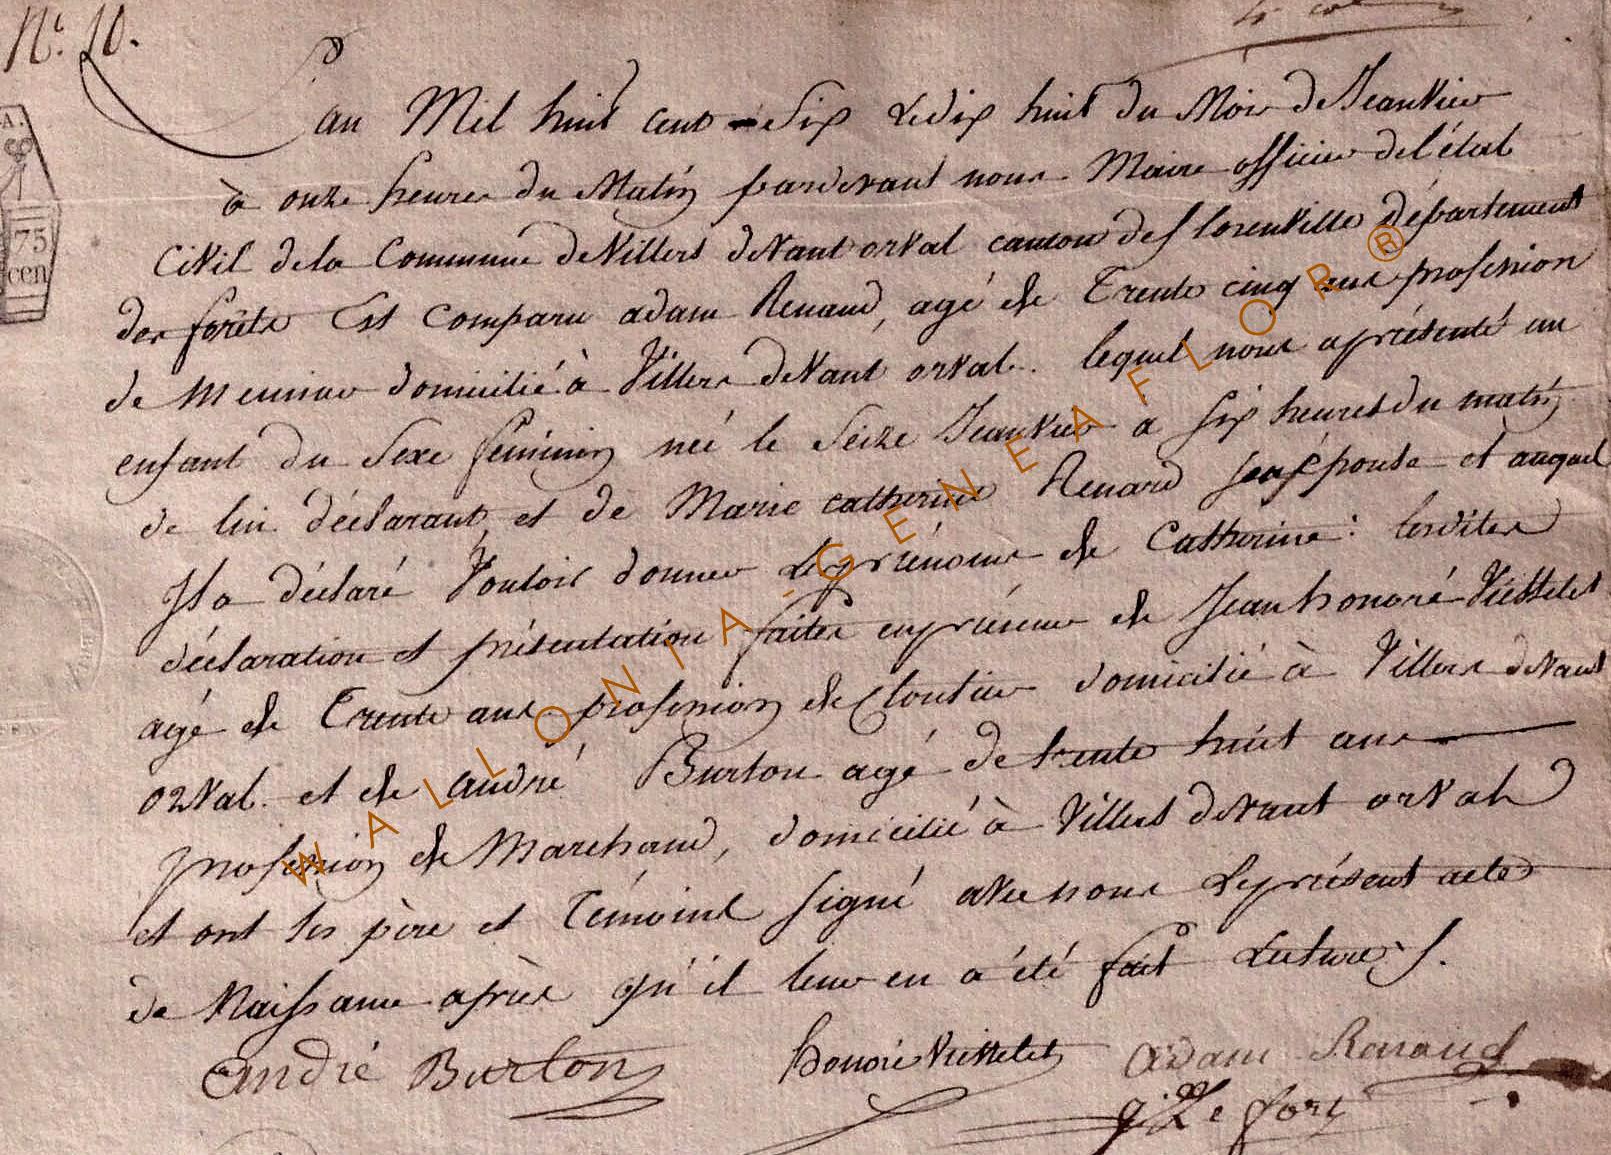 N.º 10.
L'an Mil huit cent Six Le dix huit du Mois de Jeanvier
à onze heures du Matin pardevant nous Maire officier de l'état
Civil de la Commune de Villers devant orval canton de florenville département
des forêts Est Comparu adam Renaud, agé de Trente cinq ans profession
de Meunier domicilié à Villers devant orval. lequel nous a présenté un
enfant du Sexe féminin né le Seize Jeanvier a Six heures du matin
de lui déclarant et de Marie catherine Renard son épouse et auquel
Il a déclaré Vouloir donner Le prénoms de Catherine: lesdites
déclaration et présentation faites en présence de Jean honoré Viesselet
agé de Trente ans profession de Cloutier domicilié à Villers devant
orval. et de andré Burton agé de trente huit ans
profession de Marchand, domicilié à Villers devant orval
et ont les père et Témoins signé avec nous Le présent acte
de Naissance après qu'il leur en a été fait Lecture
andré Burton honoré Viesselet adam Renaud
Le fort
A.
75
cen
WALLONIA-GENEAFLOR®